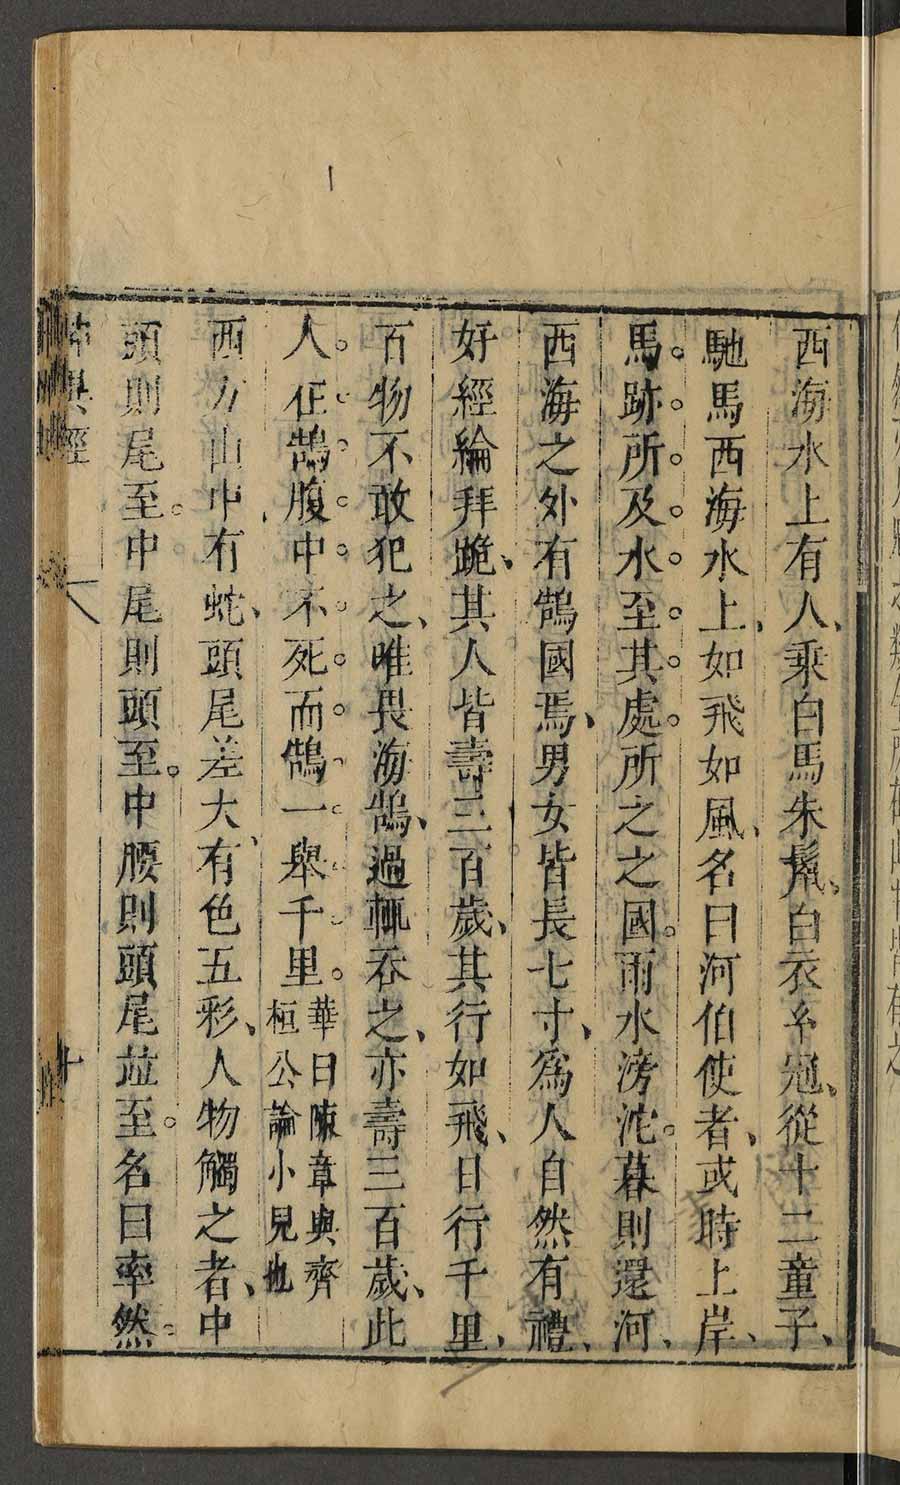 西海水上有人、乘白馬朱鬣、白衣玄冠、從十二童子、
馳馬西海水上、如飛如風、名曰河伯使者、或時上岸、
馬。跡。所。及。水。至。其。處。所之之國。雨水滂沱。暮則還河、
西海之外有鵠國焉、男女皆長七寸、爲人自然有禮、
好經綸拜跪、其人皆壽三百歲、其行如飛、日行千里、
百物不敢犯之、唯畏海鵠、過輒吞之、亦壽三百歲、此
人。在鵠。腹。中。不。死。而。鵠一舉千里。華曰陳章與齊
桓公論小兒也
西方山中有蛇、頭尾差大、有色五彩、人物觸之者、中
頭則尾至。中尾則頭至。中腰則頭尾並至。名曰率然。
神異經 十